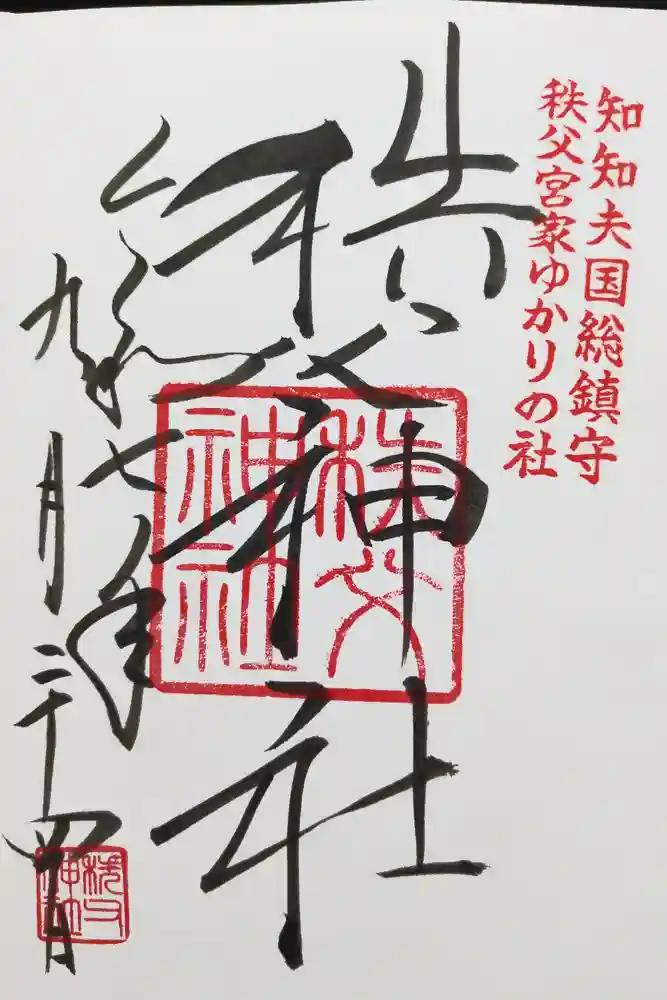 知知夫国総鎮守
秩父宮家ゆかりの社
秩父神社
秩父神社
令和七年
九月二十四日
秩父神社